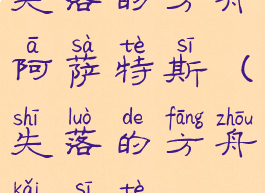 失落的方舟
ā sà tè sī
阿萨特斯(
shī luò de fāng zhōu
失落的方舟
kǎi sī tè